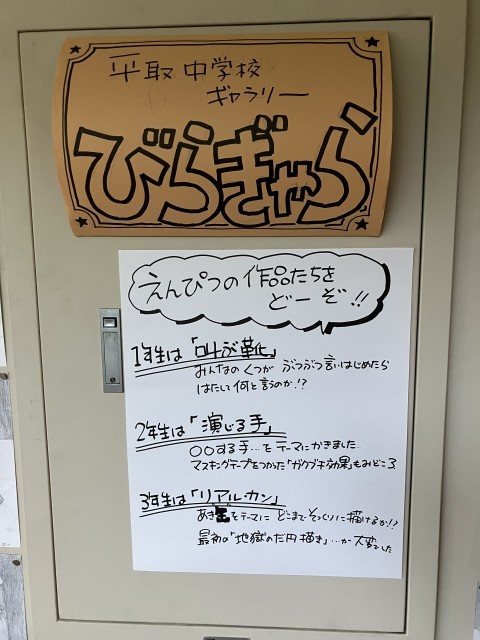 平取中学校
ギャラリー
びらぎゃら
えんぴつの作品たちを
どーぞ!!
1年生は「叫ぶ靴」
みんなのくつが ぶつぶつ言いはじめたら
はたして何と言うのか!?
2年生は「演じる手」
○○する手…をテーマにかきました
マスキングテープをつかった「ガクブチ効果」もみどころ
3年生は「リアル・カン」
あき をテーマに どこまでそっくりに描けるか!?
最初の「地獄のだ円描き」…が大変でした